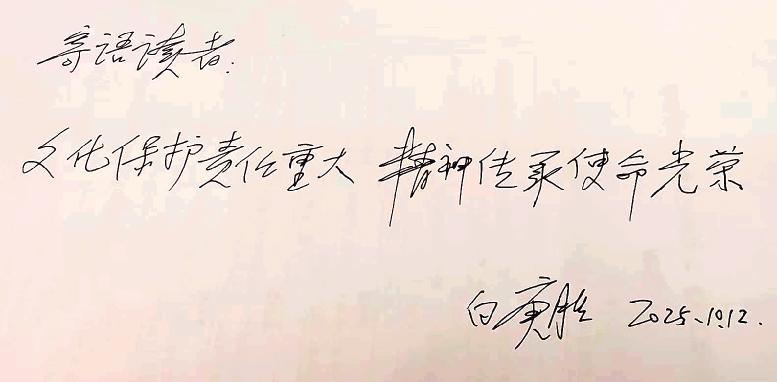 寄语读者:
文化保护责任重大 精神传承使命光荣
白庚胜 2025.10.12.